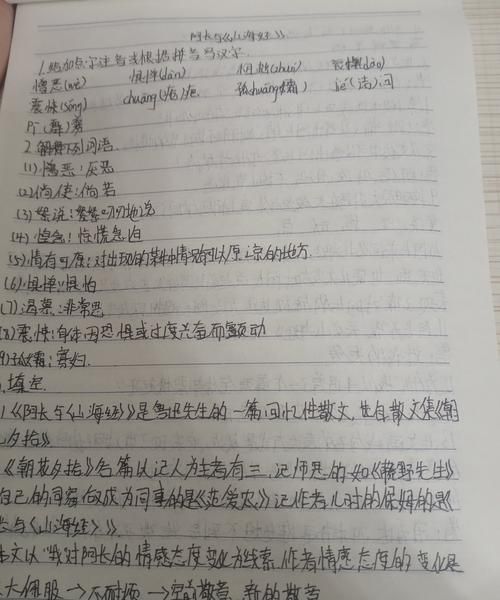 阿长与《山海经》
1.给加点字注音或根据拼音写汉字.
憎恶(wù) 惧惮(dàn)
震悚(sǒng) chuāng(疮)疤 孤shuāng(孀) jié(诘)问
2.解释下列词语.
(1)憎恶:厌恶
(2)倘使:倘若
(3)絮说:絮絮叨叨地说
(4)惶急:惊慌急迫
(5)情有可原:对出现的某种情况可以原谅的地方.
(6)惧惮:惧怕
(7)渴慕:非常思
(8)震悚:身体因恐惧或过度兴奋而颤动
(9)孤孀:寡妇.
填空.
1.《阿长与《山海经》》是鲁迅先生的一篇回忆性散文,选自散文集《朝
夕拾》
《朝花夕拾》名篇以记人为主者有三,记师恩的如《藤野先生》
自己的同窗后成为同事的是《范爱农》,记作者儿时的保姆的是《
长与《山海经》》
本文以"我"对阿长的情感态度变化为线索,作者情感态度的变化是
大佩服→不耐烦→空前敬意、新的敬意